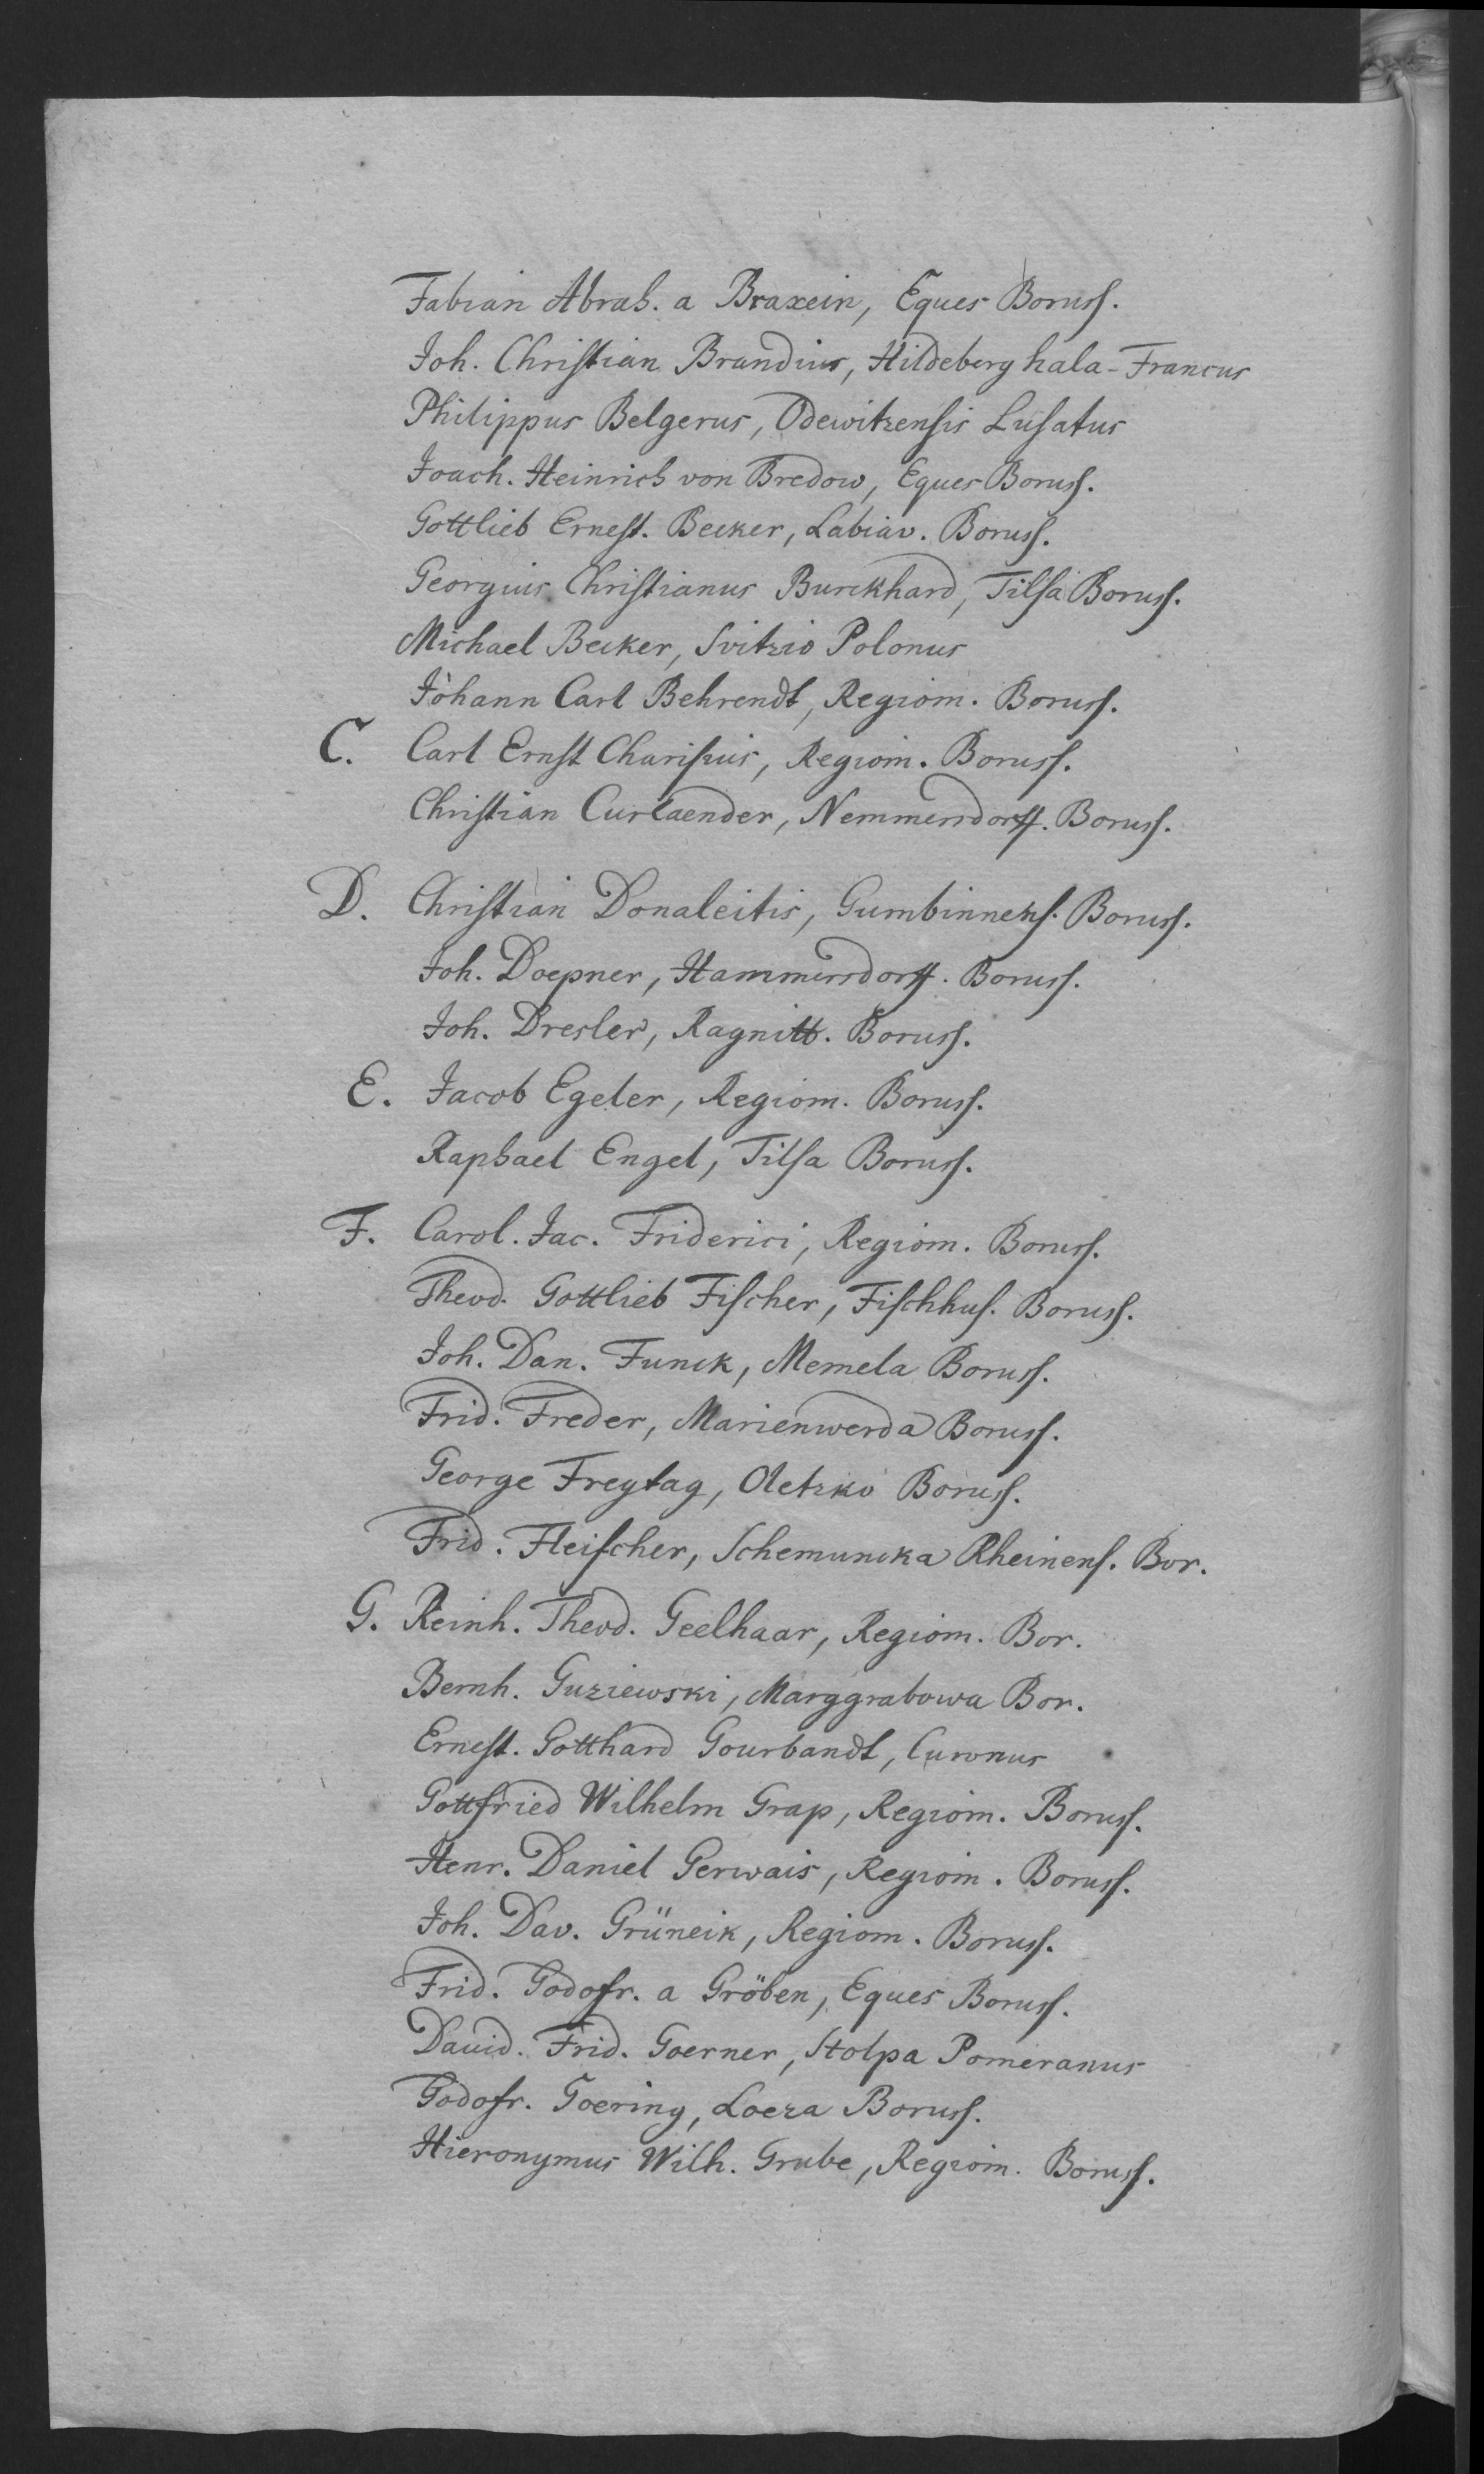 Fabian Abrah. a Braxein, Eques Boruss.
Joh. Christian Brandius, Hildeberghala-Francus
Philippus Belgerus, Odewitzensis Lusatus
Joach. Heinrich von Bredow, Eques Boruss.
Gottlieb Ernest. Becker, Labiav. Boruss.
Georgius Christianus Burckhard, Tilsa Boruss.
Michael Becker, Svitzio Polonus
Johann Carl Behrendt, Regiom. Boruss.
C. Carl Ernst Charisius, Regiom. Boruss.
Christian Curlaender, Nemmersdorff. Boruss.
D. Christian Donaleitis, Gumbinnens. Boruss.
Joh. Doepner, Hammersdorff. Boruss.
Joh. Dresler, Ragnitt. Boruss.
E. Jacob Egeler, Regiom. Boruss.
Raphael Engel, Tilsa Boruss.
F. Carol. Jac. Friderici, Regiom. Boruss.
Theod. Gottlieb Fischer, Fischhus. Boruss.
Joh. Dan. Funck, Memela Boruss.
Frid. Freder, Marienwerda Boruss.
George Freytag, Oletzko Boruss.
Frid. Fleischer, Schemuncka Rheinens. Bor.
G. Reinh. Theod. Geelhaar, Regiom. Bor.
Bernh. Guziewski, Marggrabowa Bor.
Ernest. Gotthard Gourbandt, Curonus
Gottfried Wilhelm Grap, Regiom. Boruss.
Henr. Daniel Gervais, Regiom. Boruss.
Joh. Dav. Grüneik, Regiom. Boruss.
Frid. Godofr. a Gröben, Eques Boruss.
David. Frid. Goerner, Stolpa Pomeranus
Godofr. Goering, Loeza Boruss.
Hieronymus Wilh. Grube, Regiom. Boruss.